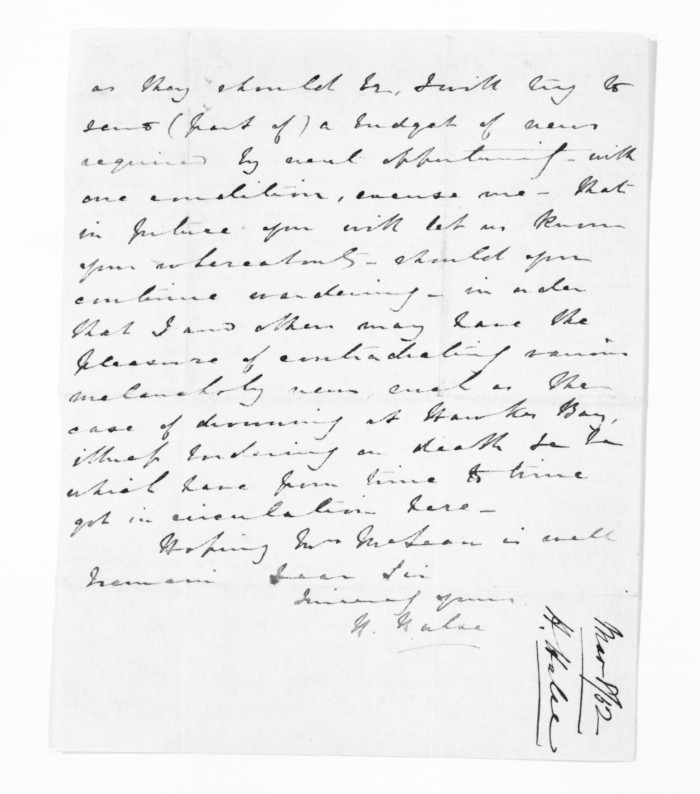 as they should be, I will try to
send (part of) a budget of news
required by next opportunity - with
one condition, excuse me - that
in future you will let us know
your whereabouts - should you
continue wandering - in order
that I and others may have the
pleasure of contradicting various
melancholy news, such as the
case of drowning at Hawkes Bay,
illness bordering on death &c &c
which have from time to time
got in circulation here -
Hoping Mrs McLean is well
I remain Dear Sir
Sincerely yours
H. Halse
Mar 1/52
H. Halse